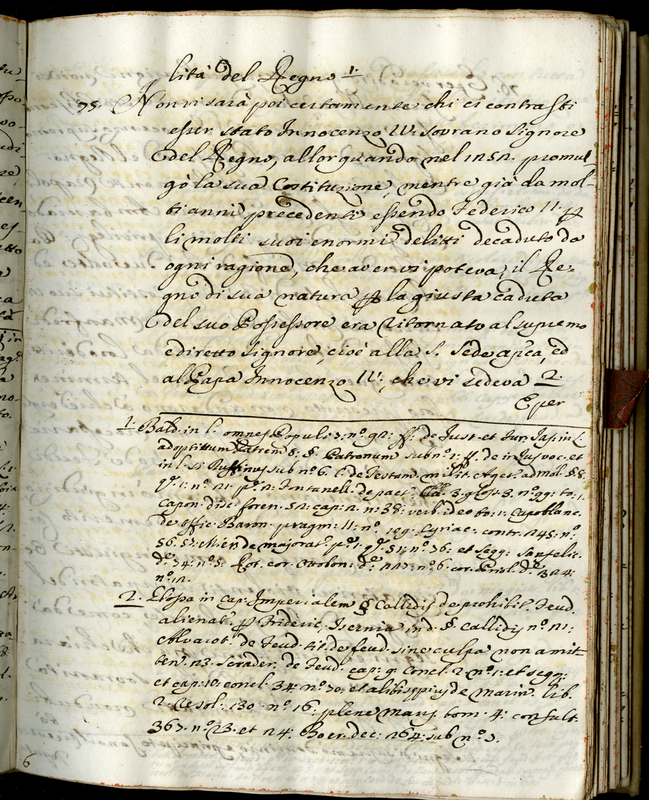 lità del Regno 1.
75. Non vi sarà poi certamente chi ci contrasti
esser stato Innocenzo IV. sovrano Signore
del Regno, allor quando nel 1252. promul
gò la sua Costituzione, mentre già da mol-
ti anni precedenti essendo Federico II. p
li molti suoi enormi delitti decaduto da
ogni ragione, che aver vi poteva, il Re-
gno di sua natura p la giusta caduta
del suo Possessore era ritornato al supremo
e diretto Signore, cioè alla S. Sede ap:ca, ed
al Papa Innocenzo IV., che vi sedeva 2.
E per
1. Bald. in l: omnes Populi 3: nº 92: ff: de Just. et Jur. Jas. in l.
adoptitium Patrem 8: §. Patronum sub nº 1: ff. de in jus voc. et
in l: si Ruffinus sub nº 6. C. de Testam. milit.
Fontanell. de pact: glos. 3. nº 99: to: 1.
Capon: disc. foren. 52: cap: 2. n: 30: verb: ideo to: 1. Capoblanc.
de offic. Baron. pragm: 11: nº 109: Cyriac. contr. 245: nº
56. 57. de majorat: et segg: Sanfelic.
34: nº 5: Rot. cor. nº 6: cor.
nº 12.
2. Rosa in cap: Imperialem § Callidis de prohib. Feud.
alienat: p Frideric. Isernia in d. § Callidis nº 21:
Alvarot. de Feud. tit. de feud. sine culpa non amit
ten. 23. Scrader. de Feud. cap: 9. concl. 2. nº 1: et segg:
et cap: 10. concl. 34: nº 30. de Marin. lib.
2. resol: 130. nº 16. plene tom: 4: consult.
367. nº 23. et 24. Boer. dec. 264: sub nº 3.
6